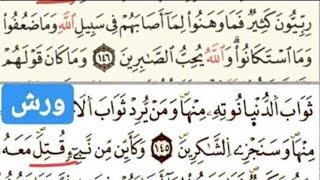 رِبِّيُّونَ كَثِيرٌ فَمَا وَهَنُوا۟ لِمَآ أَصَابَهُمْ فِى سَبِيلِ ٱللَّهِ وَمَا ضَعُفُوا۟
وَمَا ٱسْتَكَانُوا۟ وَٱللَّهُ يُحِبُّ ٱلصَّٰبِرِينَ ١٤٦ وَمَا كَانَ قَوْلَهُمْ
ثَوَابَ ٱلدُّنْيَا نُوتِهِۦ مِنْهَا وَمَنْ يُّرِدْ ثَوَابَ ٱلَا
ورش
مِنْهَا وَسَنَجْزِى ٱلشَّٰكِرِينَ ١٤٥ وَكَأَيِّن مِّن نَّبِىٓءٍ قُتِلَ مَعَهُۥ